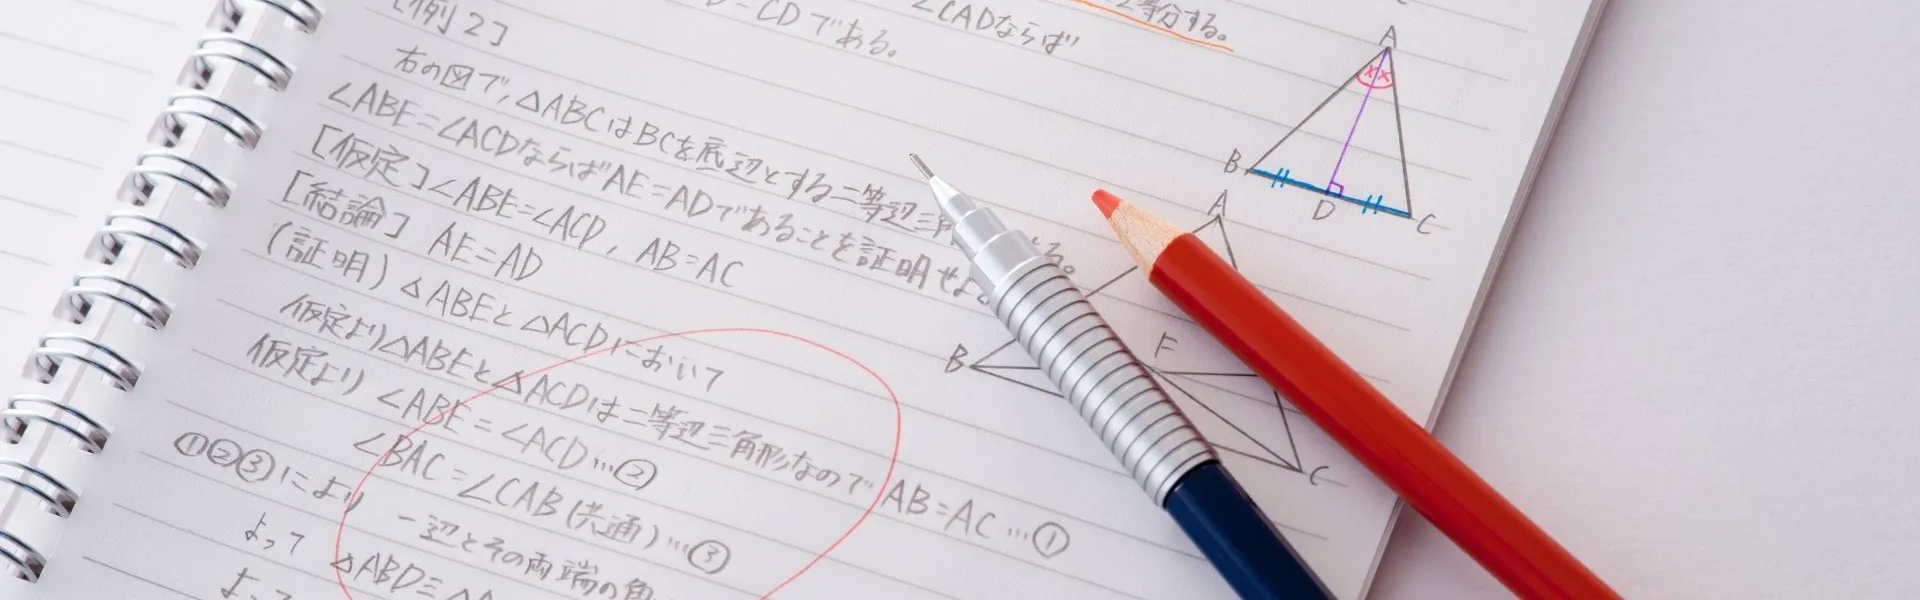 [例2]
D=CDである。
∠CADならば
2等分する。
右の図で、△ABCはBCを底辺とする二等辺三角
る。
∠ABE=∠ACDならばAE=ADであることを証明せよ。
[仮定]∠ABE=∠ACD, AB=AC
[結論] AE=AD
(証明) △ABEと△ACDにおいて
仮定より△ABEと△ACDは二等辺三角形なので AB=AC…①
仮定より ∠ABE=∠ACD…②
∠BAC=∠CAB(共通)…③
①②③により 一辺とその両端の角
よって △ABD≡△A
よって
A
B
D
C
A
B
F
C